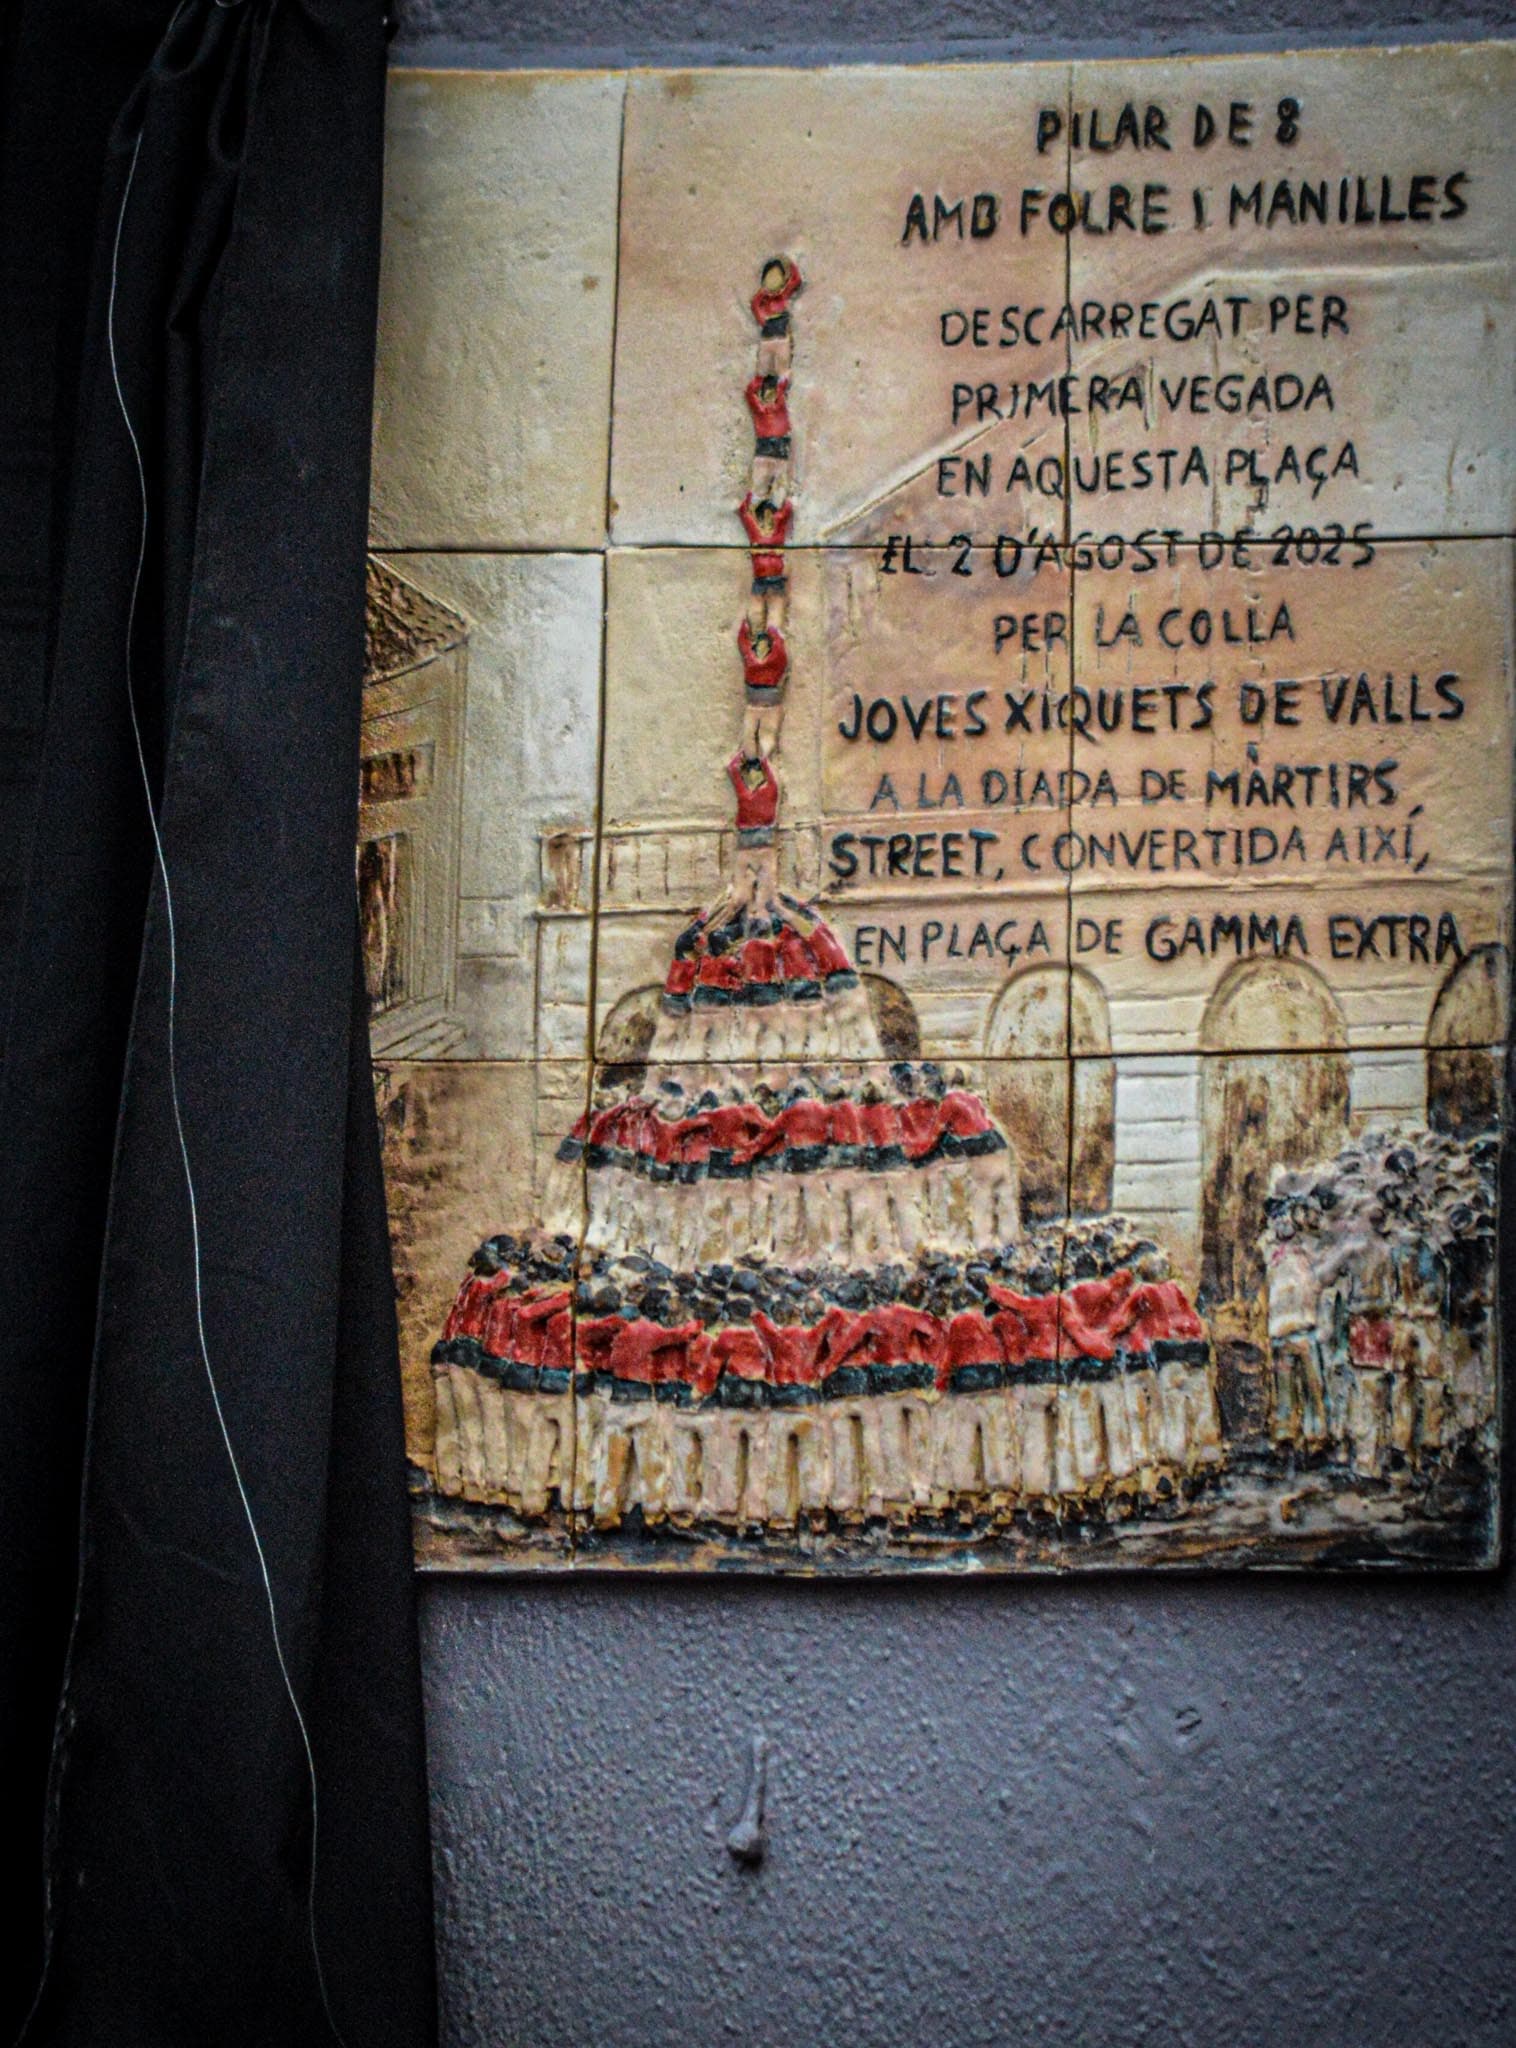 PILAR DE 8
AMB FOLRE I MANILLES
DESCARREGAT PER
PRIMERA VEGADA
EN AQUESTA PLAÇA
EL 2 D'AGOST DE 2025
PER LA COLLA
JOVES XIQUETS DE VALLS
A LA DIADA DE MÀRTIRS
STREET, CONVERTIDA AIXÍ,
EN PLAÇA DE GAMMA EXTRA